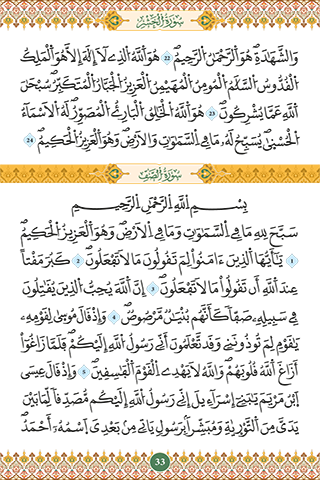 سُورَةُ الْحَشْرِ
وَالشَّهَادَةِ هُوَ الرَّحْمَٰنُ الرَّحِيمُ 22 هُوَ اللَّهُ الَّذِي لَا إِلَٰهَ إِلَّا هُوَ الْمَلِكُ
الْقُدُّوسُ السَّلَٰمُ الْمُؤْمِنُ الْمُهَيْمِنُ الْعَزِيزُ الْجَبَّارُ الْمُتَكَبِّرُ سُبْحَٰنَ
اللَّهِ عَمَّا يُشْرِكُونَ 23 هُوَ اللَّهُ الْخَٰلِقُ الْبَارِئُ الْمُصَوِّرُ لَهُ الْأَسْمَآءُ
الْحُسْنَىٰ يُسَبِّحُ لَهُ مَا فِي السَّمَٰوَٰتِ وَالْأَرْضِ وَهُوَ الْعَزِيزُ الْحَكِيمُ 24
سُورَةُ الصَّفِّ
بِسْمِ اللَّهِ الرَّحْمَٰنِ الرَّحِيمِ
سَبَّحَ لِلهِ مَا فِي السَّمَٰوَٰتِ وَمَا فِي الْأَرْضِ وَهُوَ الْعَزِيزُ الْحَكِيمُ
1 يَٰٓأَيُّهَا الَّذِينَ ءَامَنُواْ لِمَ تَقُولُونَ مَا لَا تَفْعَلُونَ 2 كَبُرَ مَقْتاً
عِندَ اللَّهِ أَن تَقُولُواْ مَا لَا تَفْعَلُونَ 3 إِنَّ اللَّهَ يُحِبُّ الَّذِينَ يُقَٰتِلُونَ
فِي سَبِيلِهِ صَفّاً كَأَنَّهُم بُنْيَٰنٌ مَّرْصُوصٌ 4 وَإِذْ قَالَ مُوسَىٰ لِقَوْمِهِ
يَٰقَوْمِ لِمَ تُؤْذُونَنِي وَقَد تَّعْلَمُونَ أَنِّي رَسُولُ اللَّهِ إِلَيْكُمْ فَلَمَّا زَاغُوٓاْ
أَزَاغَ اللَّهُ قُلُوبَهُمْ وَاللَّهُ لَا يَهْدِي الْقَوْمَ الْفَٰسِقِينَ 5 وَإِذْ قَالَ عِيسَى
ابْنُ مَرْيَمَ يَٰبَنِيٓ إِسْرَآءِيلَ إِنِّي رَسُولُ اللَّهِ إِلَيْكُم مُّصَدِّقاً لِّمَا بَيْنَ
يَدَيَّ مِنَ التَّوْرَىٰةِ وَمُبَشِّراً بِرَسُولٍ يَأْتِي مِنۢ بَعْدِيَ اسْمُهُ أَحْمَدُ
33